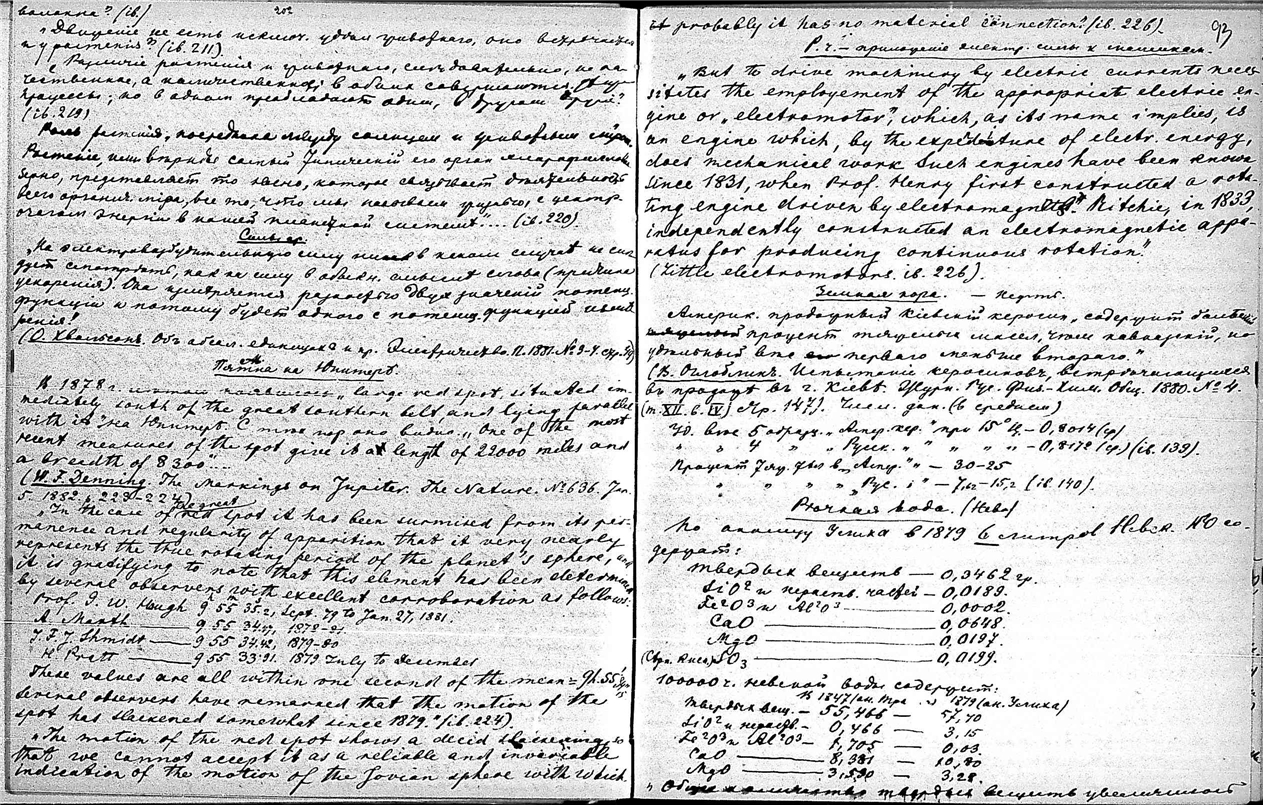 202
„Движение не есть исключ. удел животнаго, оно встречается
и у растенія" (ib. 211).
„Различіе растенія и животнаго, следовательно, не ка-
чественное, а количественное; в обоих совершаются
процессы; но в одном преобладают одни, в другом другіе"
(ib. 219)
Роль растенія, посредника между солнцем и животным міром.
Растеніе, или вернее самый типическій его орган хлорофилловое
зерно, представляет то звено, которое связывает деятельность
всего органич. міра, все то, что мы называем жизнью, с центр.
очагом энергіи в нашей планетной системе".... (ib. 220).
„На электровозбудительную силу в каком случае не сле-
дует смотреть, как на силу в обыкн. смысле слова (причина
ускоренія). Она измеряется разностью двух значеній потенц.
функціи и потому будет одного с потенц. функціей
ренія"
(О. Хвольсонъ. Объ абсол. единицахъ и пр. Электричество. П. 1881. № 3-4. стр.
Пятна на Юпитерѣ.
В 1878 г. „large red spot, situated im-
mediately south of the great southern belt and lying parallel
with it" на Юпитерѣ. С тех пор оно видно. „One of the most
recent measures of the spot give it a length of 22000 miles and
a breadth of 8300"....
(W. F. Denning. The Markings on Jupiter. The Nature. № 636. Jan.
5. 1882. p. 223-224)
„In the case of the great red spot it has been surmised from its per-
manence and regularity of apparition that it very nearly
represents the true rotating period of the planet's sphere, and
it is gratifying to note that this element has been determined
by several observers with excellent corroboration as follows:
Prof. G. W. Hough 9 55 35.2, Sept. 79 to Jan. 27, 1881.
A. Marth — 9 55 34.47, 1878-81
J. F. J. Shmidt — 9 55 34.42, 1879-80
H. Pratt — 9 55 33.91. 1879 July to december
These values are all within one second of the mean = 9h. 55'
several observers have remarked that the motion of the
spot has slackened somewhat since 1879." (ib. 224).
„The motion of the red spot shows a decid slackening, so
that we cannot accept it as a reliable and invariable
indication of the motion of the Jovian sphere with which
it probably it has no material connection". (ib. 226).
93
Р. ч. — примѣненіе электр. силы к машинам.
„But to drive machinery by electric currents neces-
sitates the employement of the appropriate electric en-
gine or „electromotor", which, as its name implies, is
an engine which, by the expenditure of electr. energy,
does mechanical work. Such engines have been known
since 1831, when Prof. Henry first constructed a rota-
ting engine driven by electromagnets. Ritchie, in 1833,
independently constructed an electromagnetic appa-
ratus for producing continuous rotation."
(Little electromotors. ib. 226).
Земная кора. — Нефть.
Америк. продажный Кіевскій керосин „содержит больший
процент тяжелых масел, чем кавказскій, но
удельный вес его перваго меньше втораго."
(В. Оглоблинъ. Испытаніе керосиновъ, встречающихся
въ продажѣ въ г. Кіевѣ. Журн. Рус. Физ.-Хим. Общ. 1880. № 4.
(т. XII. в. IV) стр. 147). Числ. дан. (в среднем)
Уд. вес 5 образц. „Амер. кер." при 15° Ц. — 0,8014 (ср)
„ „ 4 „ „Русск. „ „ „ „ — 0,8172 (ср) (ib. 139).
Процент тяж. у „Амер." „ — 30-25
„ „ „ „ „Рус." „ — 7,62-15,2 (ib. 140).
Речная вода. (Нева)
По анализу Услика в 1879 6 литров Невск. HO со-
держат:
твердых веществ — 0,3462 гр.
SiO² и нераств. частей — 0,0189.
Fe²O³ и Al²O³ — 0,0002.
CaO — 0,0648.
MgO — 0,0197.
SO₃ — 0,0199.
100000 ч. невской воды содержит:
В 1847 (ан. 1879 (ан. Услика)
твердых вещ. — 55,466 — 57,70
SiO² и нераств. — 0,466 — 3,15
Fe²O³ и Al²O³ — 1,705 — 0,03
CaO — 8,381 — 10,80
MgO — 3,590 — 3,28
„Общее количество твердых веществ увеличилось